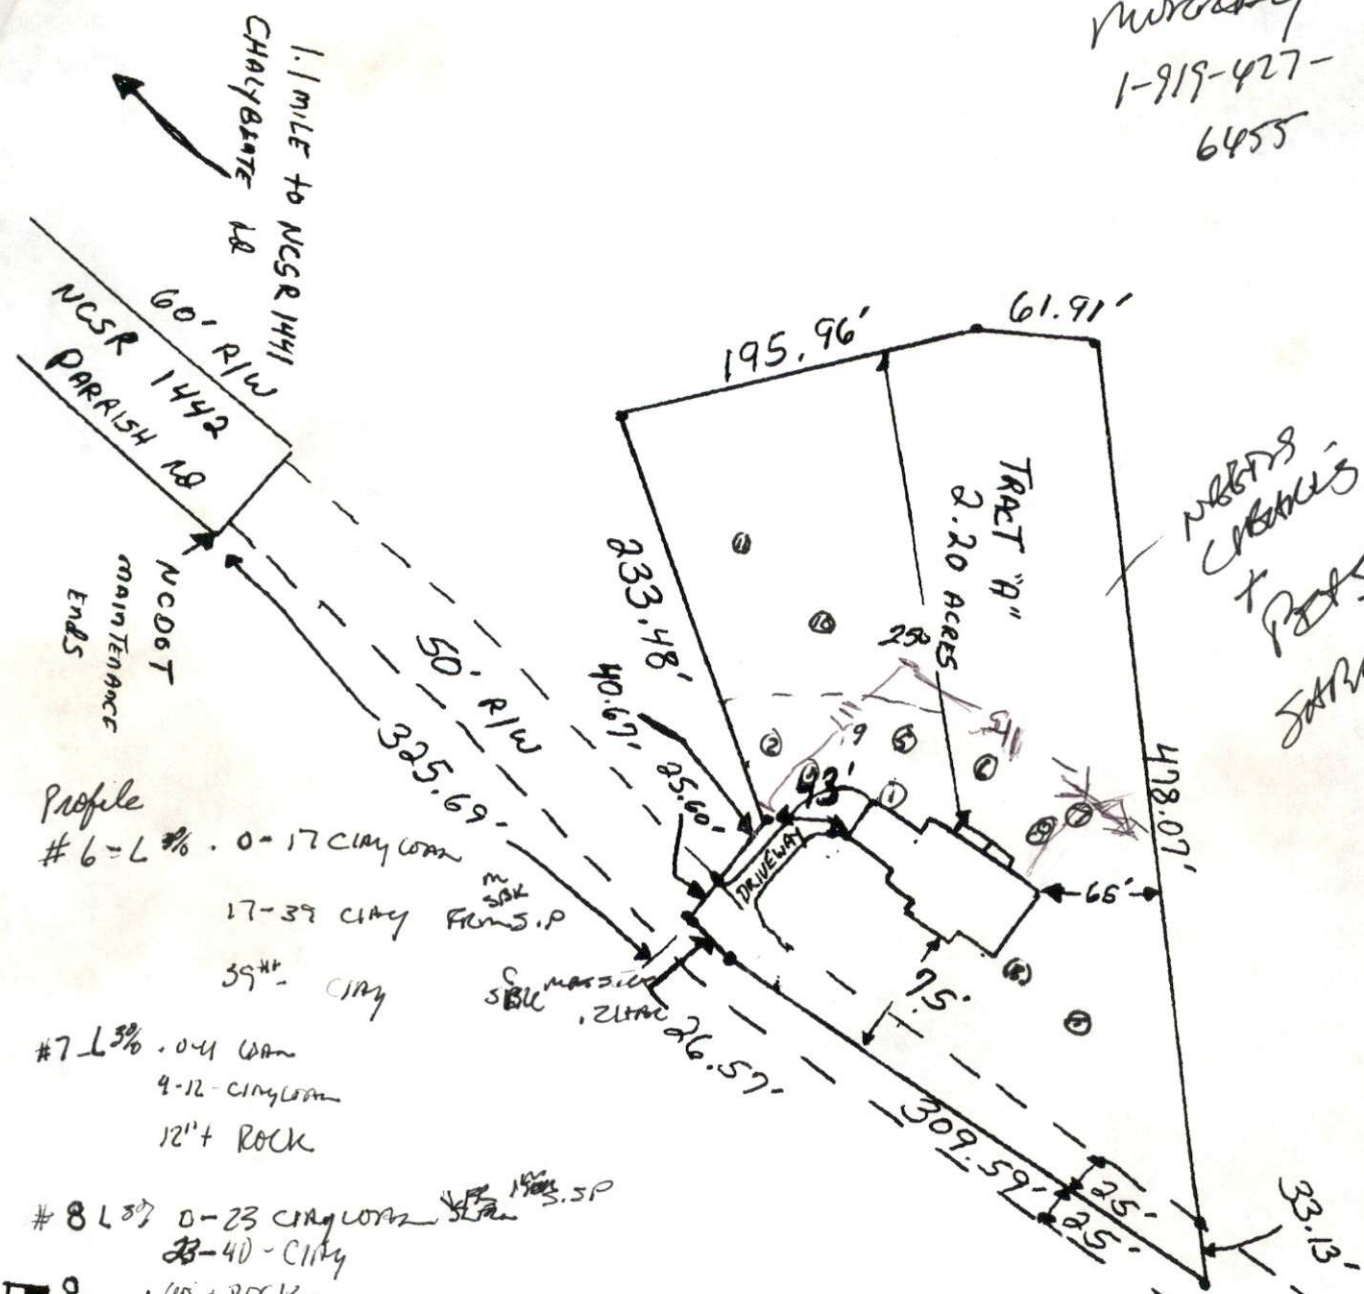 1-919-427-
6455
1.1 MILE to NCSR 1441
CHALYBEATE RD
60' R/W
NCSR 1442
PARRISH RD
NCDOT
MAINTENANCE
ENDS
50' R/W
325.69'
195.96'
61.91'
233.48'
TRACT "A"
2.20 ACRES
250
478.07'
NEEDS
+
40.67'
25.60'
93'
DRIVEWAY
65'
75'
26.57'
309.59'
25'
25'
33.13'
11
10
2
9
5
6
1
7
8
Profile
#6 = L 3% . 0-17 CLAY LOAM
17-39 CLAY SBK FIRM S.P
39"+ - CLAY SBK MASSIVE
#7 - L 3% . LOAM
4-12 - CLAY LOAM
12"+ ROCK
#8 L 3% 0-23 CLAY LOAM S.SP
23-40 - CLAY
ROCK